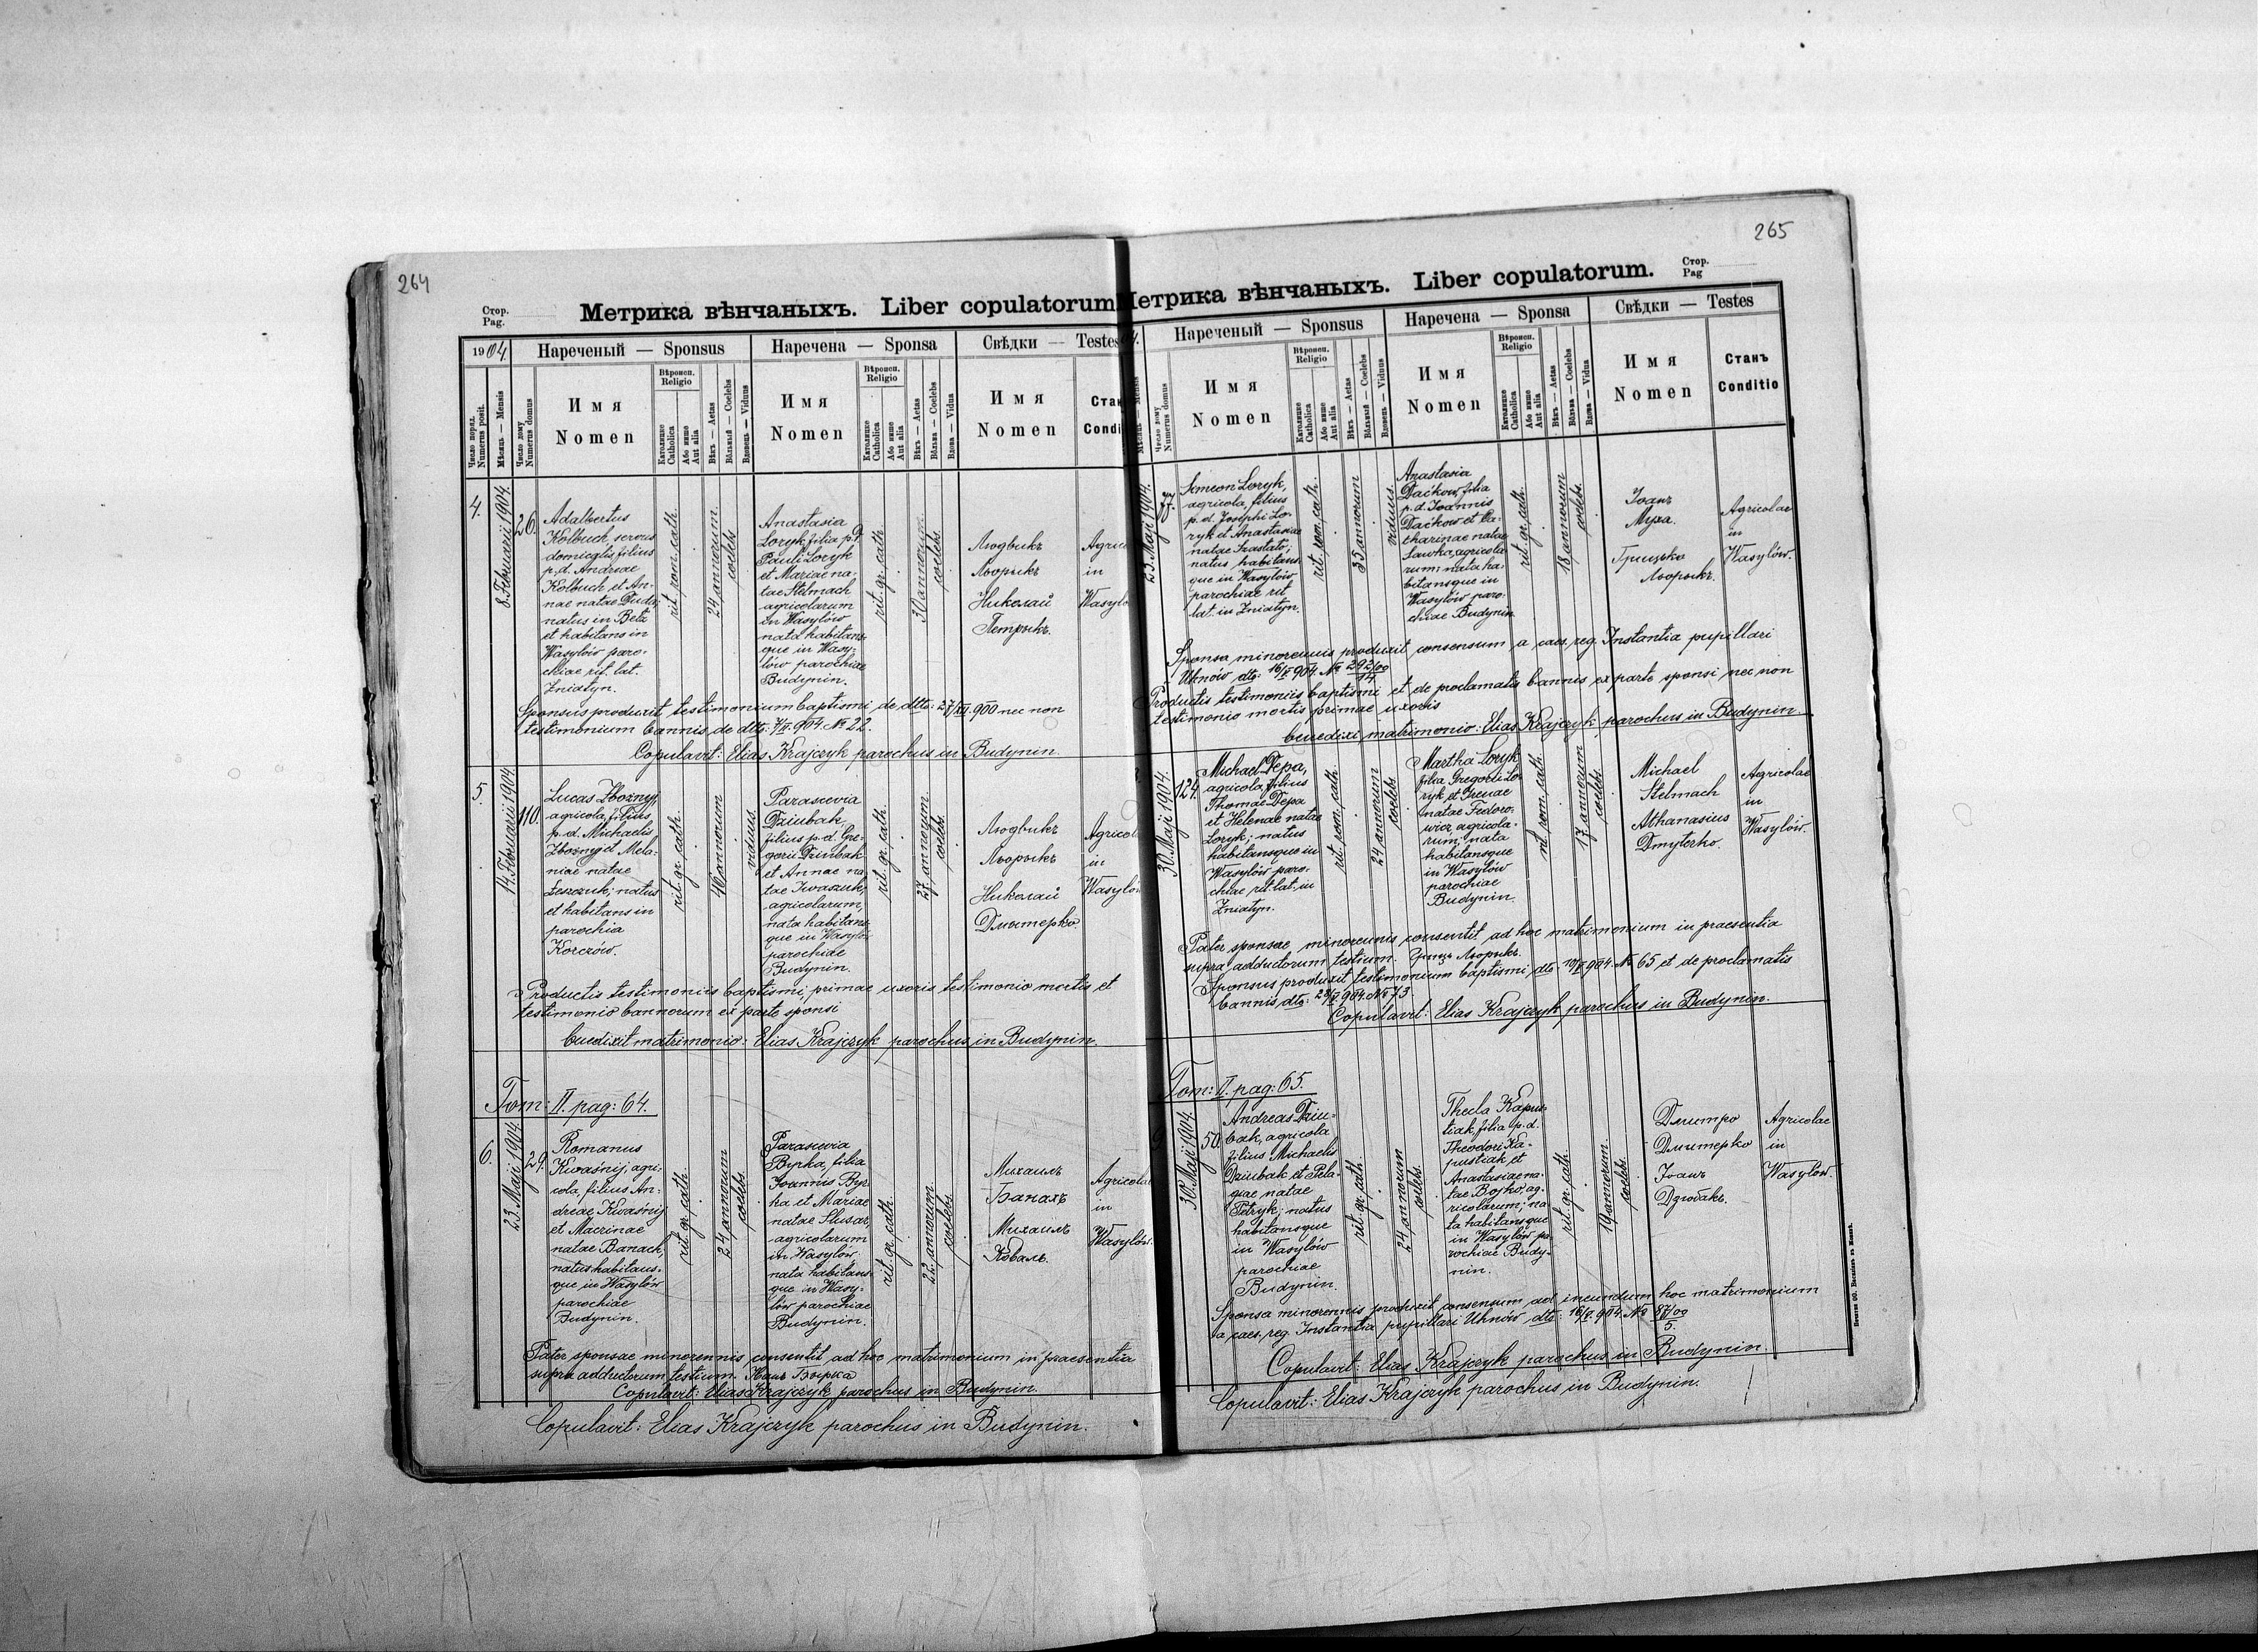 264
Стор.
Pag.
Метрика вѣнчаныхъ. Liber copulatorum
1904.
Нареченый — Sponsus
Наречена — Sponsa
Свѣдки — Testes
Число поряд.
Numerus posit.
Мѣсяць — Mensis
Число дому
Numerus domus
Имя
Nomen
Вѣроисп.
Religio
Католицке
Catholica
Або инше
Aut alia
Вѣкъ — Aetas
Вôльный — Coelebs
Вдовець — Viduus
Имя
Nomen
Вѣроисп.
Religio
Католицке
Catholica
Або инше
Aut alia
Вѣкъ — Aetas
Вôльна — Coelebs
Вдова — Vidua
Имя
Nomen
Стан
Condi
4.
8. Februarii 1904.
26.
Adalbertus
Kolbuch, servus
domicglis, filius
p. d. Andreae
Kolbuch et An-
nae natae Duda
natus in Betz
et habitans in
Wasylów paro-
chiae rit. lat.
Zniatyn.
rit. rom. cath.
24 annorum
coelebs
Anastasia
Loryk, filia p. d.
Pauli Loryk
et Mariae na-
tae Stelmach
agricolarum
in Wasylów
nata habitans-
que in Wasy-
lów parochiae
Budynin.
rit. gr. cath.
30 annorum
coelebs.
Людвикъ
Льорыкъ
Николай
Петрыкъ.
Agrico
in
Wasylo
Sponsus produxit testimonium baptismi de dtto: 27/XII 900 nec non
testimonium bannis de dtto: 7/II 904 № 22.
Copulavit: Elias Krajczyk parochus in Budynin.
5.
14. Februarii 1904
110.
Lucas Zboznyj
agricola, filius
p. d. Michaelis
Zboznyj et Mela-
niae natae
Leszczuk; natus
et habitans in
parochia
Korczów.
rit. gr. cath.
46 annorum
viduus.
Parascevia
Dziubak,
filius p. d. Gre-
gorii Dziubak
et Annae na-
tae Iwaszuk,
agricolarum,
nata habitans-
que in Wasylów
parochiae
Budynin.
rit. gr. cath.
27 annorum
coelebs.
Людвикъ
Льорыкъ
Николай
Дмытерко.
Agricol
in
Wasylów
Productis testimoniis baptismi, primae uxoris testimonio mortis et
testimonio bannorum ex parte sponsi
benedixit matrimonio: Elias Krajczyk parochus in Budynin.
Tom: II. pag: 64.
6.
23. Maji 1904.
29.
Romanus
Kwaśnij, agri-
cola, filius An-
dreae Kwaśnij
et Macrinae
natae Banach,
natus habitans-
que in Wasylów
parochiae
Budynin.
rit. gr. cath.
24 annorum
coelebs.
Parascevia
Byrka, filia
Joannis Byr-
ka et Mariae
natae Slusar,
agricolarum
in Wasylów
nata habitans-
que in Wasy-
lów parochiae
Budynin.
rit. gr. cath.
22 annorum
coelebs.
Михаилъ
Банахъ
Михаилъ
Коваль.
Agricolae
in
Wasylów.
Pater sponsae minorennis consentit ad hoc matrimonium in praesentia
supra adductorum testium. Иванъ Бырка
Copulavit: Elias Krajczyk parochus in Budynin.
Copulavit: Elias Krajczyk parochus in Budynin.
265
Стор.
Pag
Метрика вѣнчаныхъ. Liber copulatorum.
Нареченый — Sponsus
Наречена — Sponsa
Свѣдки — Testes
Мѣсяць — Mensis
Число дому
Numerus domus
Имя
Nomen
Вѣроисп.
Religio
Католицке
Catholica
Або инше
Aut alia
Вѣкъ — Aetas
Вôльный — Coelebs
Вдовець — Viduus
Имя
Nomen
Вѣроисп.
Religio
Католицке
Catholica
Або инше
Aut alia
Вѣкъ — Aetas
Вôльна — Coelebs
Вдова — Vidua
Имя
Nomen
Станъ
Conditio
23. Maji 1904.
77.
Simeon Loryk,
agricola, filius
p. d. Josephi Lo-
ryk et Anastasiae
natae
natus habitans-
que in Wasylów
parochiae rit
lat. in Zniatyn.
rit. rom. cath.
35 annorum
viduus.
Anastasia
Daćkow, filia
p. d. Joannis
Daćkow et Ca-
tharinae natae
Sawka, agricola-
rum; nata ha-
bitansque in
Wasylów paro-
chiae Budynin
rit. gr. cath.
18 annorum
coelebs.
Іоанъ
Муха.
Грицько
Льорыкъ.
Agricolae
in
Wasylów.
Sponsa minorennis produxit consensum a caes. reg. Instantia pupillari
Uhnów dto: 16/V 904. № 292/00
14.
Productis testimoniis baptismi et de proclamatis bannis ex parte sponsi nec non
testimonio mortis primae uxoris
benedixi matrimonio: Elias Krajczyk parochus in Budynin.
30. Maji 1904.
124.
Michael Depa,
agricola, filius
Thomae Depa
et Helenae natae
Loryk; natus
habitansque in
Wasylów paro-
chiae rit. lat. in
Zniatyn.
rit. rom. cath.
24 annorum
coelebs.
Martha Loryk
filia Gregorii Lo-
ryk et Irenae
natae Fedoro-
wicz, agricola-
rum; nata
habitansque
in Wasylów
parochiae
Budynin.
rit. rom. cath.
17 annorum
coelebs.
Michael
Stelmach
Athanasius
Dmyterko.
Agricolae
in
Wasylów.
Pater sponsae minorennis consentit ad hoc matrimonium in praesentia
supra adductorum testium. Льорыкъ.
Sponsus produxit testimonium baptismi, dto: 10/V 904. № 65 et de proclamatis
bannis dto: 29/V 904. № 73
Copulavit: Elias Krajczyk parochus in Budynin.
Tom: II. pag: 65.
9.
30. Maji 1904.
50.
Andreas Dziu-
bak, agricola
filius Michaelis
Dziubak et Pela-
giae natae
Petryk; natus
habitansque
in Wasylów
parochiae
Budynin.
rit. gr. cath.
24 annorum
coelebs.
Thecla Kapus-
tiak, filia p. d.
Theodori Ka-
pustiak et
Anastasiae na-
tae Bojko, ag-
ricolarum; na-
ta habitansque
in Wasylów pa-
rochiae Budy-
nin.
rit. gr. cath.
19 annorum
coelebs.
Дмитро
Дмитерко
Іоанъ
Дзюбакъ.
Agricolae
in
Wasylów.
Sponsa minorennis produxit consensum ad ineundum hoc matrimonium
a caes. reg. Instantia pupillari Uhnów dto: 16/V 904. № 87/00
5.
Copulavit: Elias Krajczyk parochus in Budynin.
Copulavit: Elias Krajczyk parochus in Budynin.